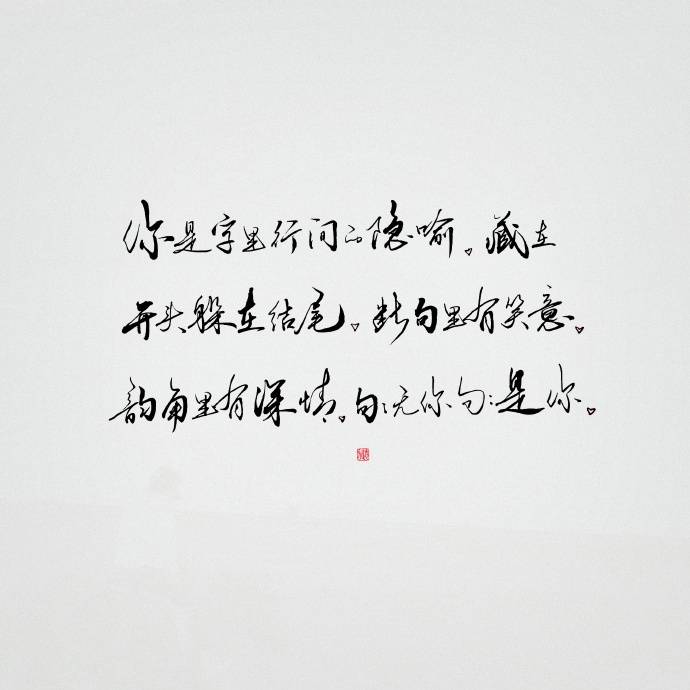 你是字里行间的隐喻。藏在
开头躲在结尾。断句里有笑意。
韵角里有深情。句句无你句句是你。